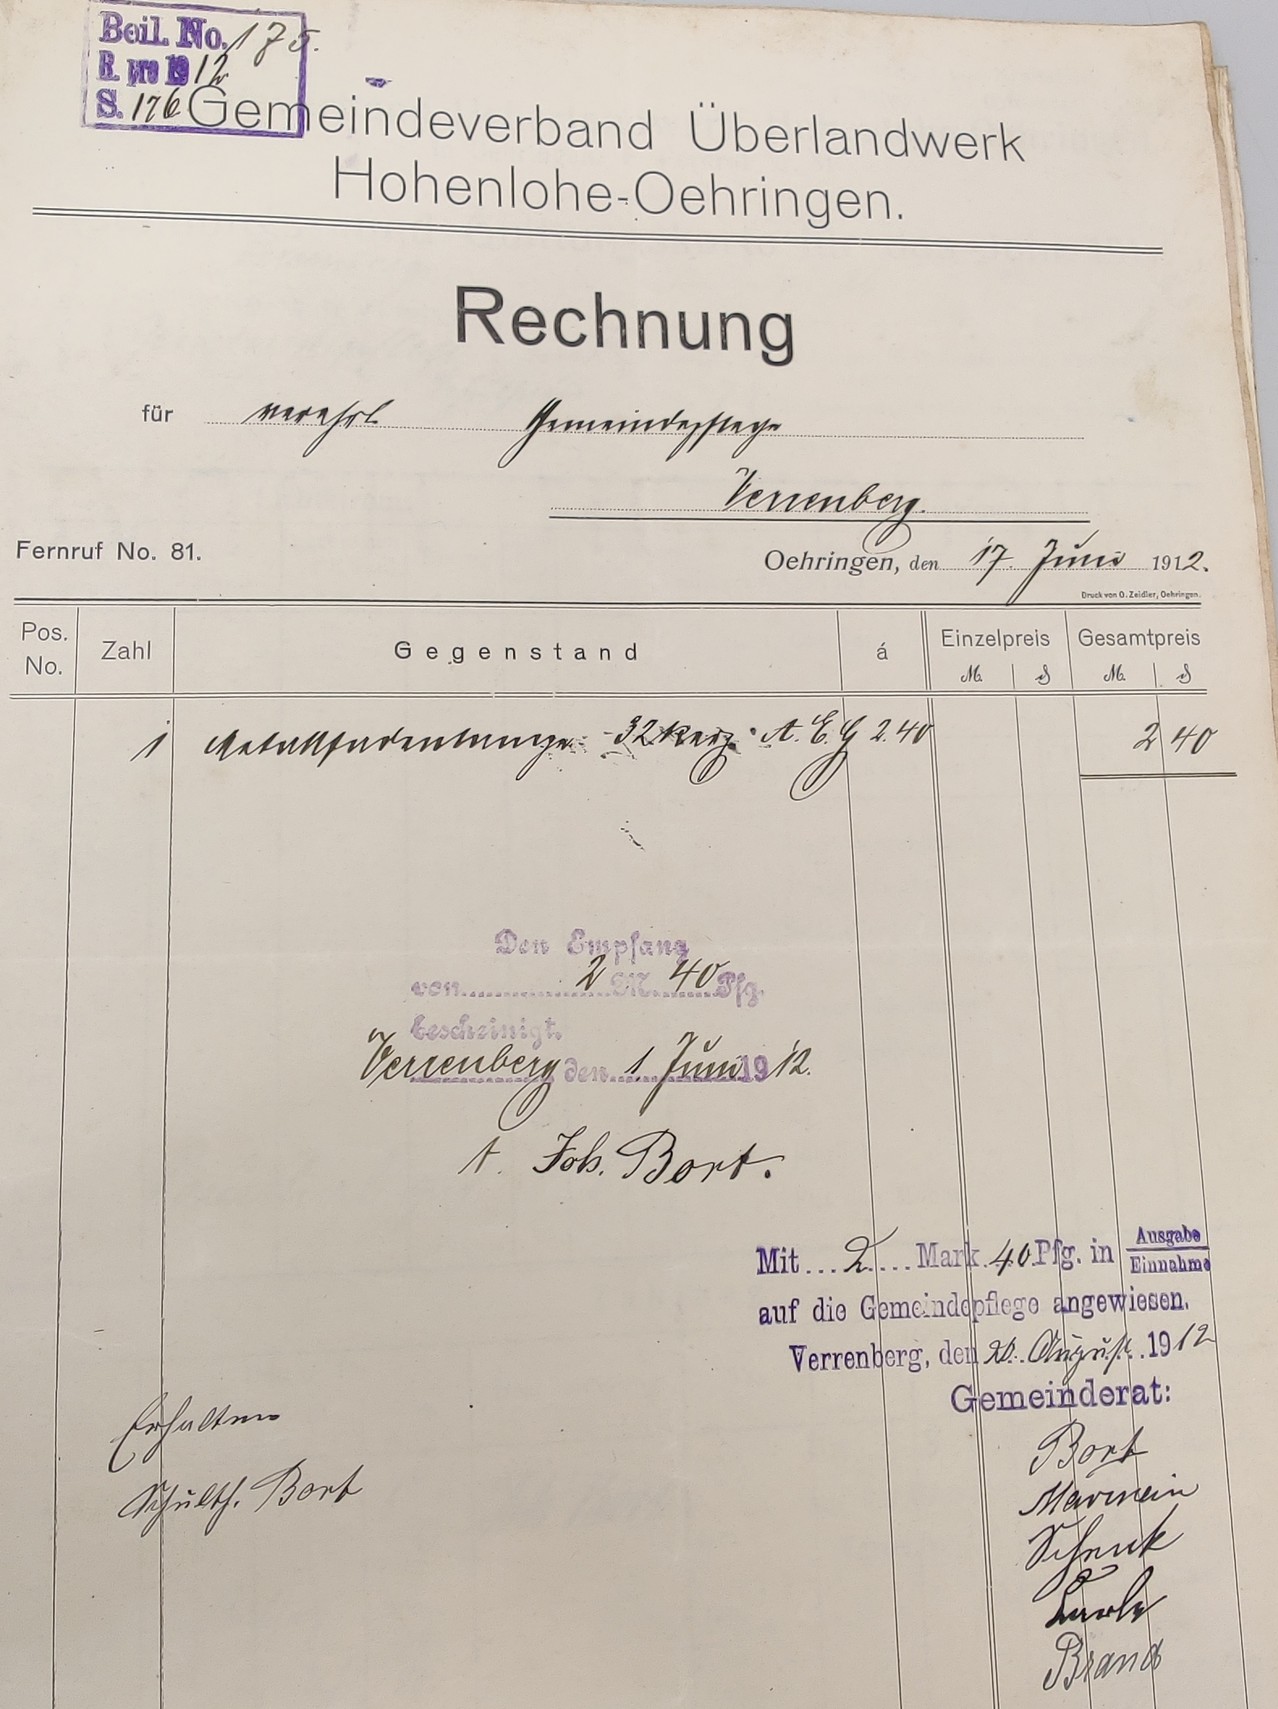 Beil. No. 175.
R. pro 1912
S. 176
Gemeindeverband Überlandwerk
Hohenlohe-Oehringen.
Rechnung
für verehrl Gemeindepflege
Verrenberg.
Fernruf No. 81.
Oehringen, den 17. Juni 1912.
Druck von O. Zeidler, Oehringen.
Pos. No. Zahl Gegenstand á Einzelpreis Gesamtpreis
M. ₰ M. ₰
1 Metallfadenlampe 32 Kerz. A. E. G 2.40 2 40
Den Empfang
von 2 M. 40 Pfg.
bescheinigt.
Verrenberg den 1 Juni 1912.
t. Joh. Bort.
Mit 2 Mark 40 Pfg. in Ausgabe
Einnahme
auf die Gemeindepflege angewiesen.
Verrenberg, den 20. August 1912
Gemeinderat:
Bort
Schenk
Brand
Erhalten
Schulth. Bort